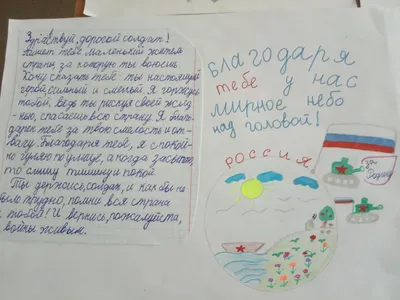 Здравствуй, дорогой солдат!
Пишет тебе маленький житель
страны, за которую ты воюешь.
Хочу сказать тебе: ты настоящий
герой, сильный и смелый. Я горжусь
тобой, ведь ты рискуя своей жиз-
нью, спасаешь всю страну. Я благо-
дарен тебе за твою смелость и от-
вагу. Благодаря тебе, я спокой-
но гуляю по улице, а когда засыпаю,
то слышу тишину и покой.
Ты держись, солдат, и как бы не
было трудно, помни вся страна
с тобой! И вернись, пожалуйста,
с войны живым.
БЛАГОДАРЯ
тебе у нас
мирное небо
над головой!
РОССИЯ
За
Родину